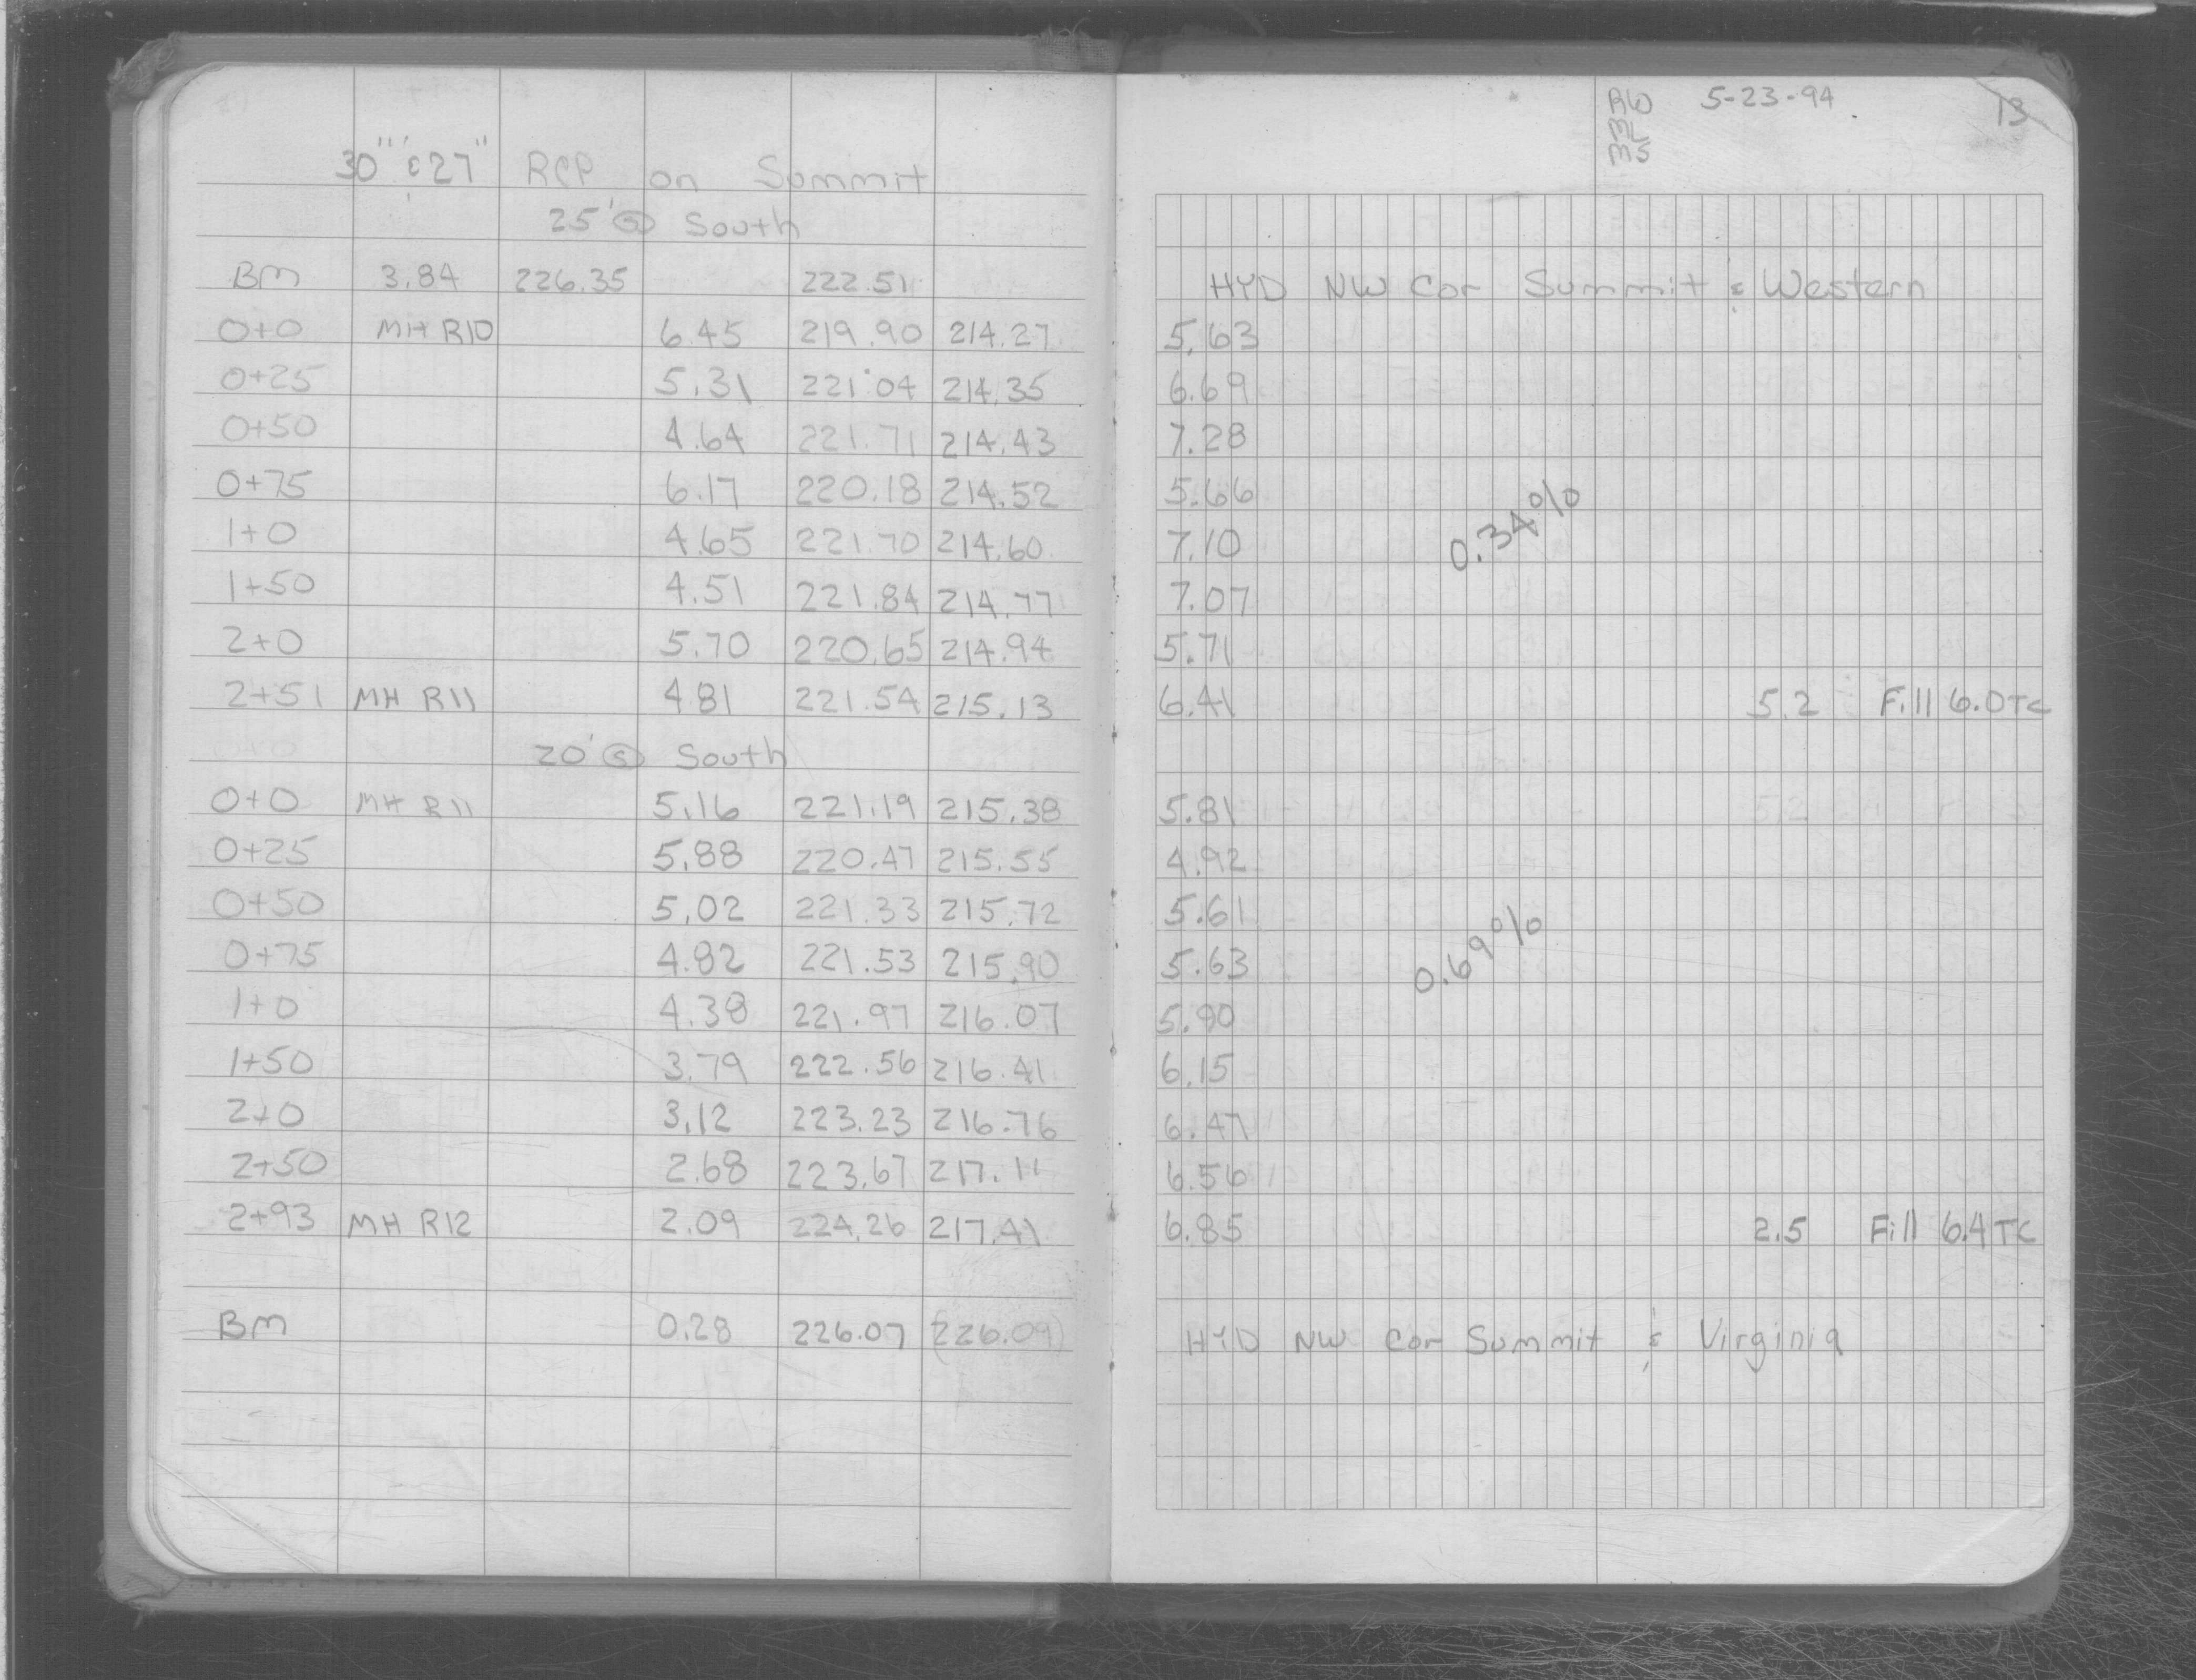 30" & 27" RCP on Summit
25' Ⓢ South
BM 3.84 226.35 222.51
0+0 MH R10 6.45 219.90 214.27
0+25 5.31 221.04 214.35
0+50 4.64 221.71 214.43
0+75 6.17 220.18 214.52
1+0 4.65 221.70 214.60
1+50 4.51 221.84 214.77
2+0 5.70 220.65 214.94
2+51 MH R11 4.81 221.54 215.13
0+0 20' Ⓢ South
0+0 MH R11 5.16 221.19 215.38
0+25 5.88 220.47 215.55
0+50 5.02 221.33 215.72
0+75 4.82 221.53 215.90
1+0 4.38 221.97 216.07
1+50 3.79 222.56 216.41
2+0 3.12 223.23 216.76
2+50 2.68 223.67 217.11
2+93 MH R12 2.09 224.26 217.41
BM 0.28 226.07 (226.09)
RW 5-23-94 13
ML
MS
HYD NW Cor Summit & Western
5.63
6.69
7.28
5.66
0.34%
7.10
7.07
5.71
6.41 5.2 Fill 6.0 TC
5.81 5.2
4.92
5.61
5.63
0.69%
5.90
6.15
6.47
6.56
6.85 2.5 Fill 6.4 TC
HYD NW Cor Summit & Virginia